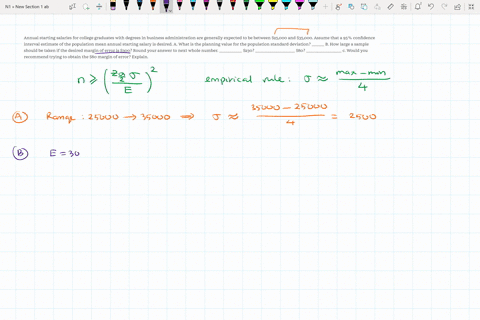 N1 » New Section 1 ab
Annual starting salaries for college graduates with degrees in business administration are generally expected to be between $25,000 and $35,000. Assume that a 95% confidence
interval estimate of the population mean annual starting salary is desired. A. What is the planning value for the population standard deviation? _____ B. How large a sample
should be taken if the desired margin of error is $300? Round your answer to next whole number. ________ $250? ________ $80? ________ c. Would you
recommend trying to obtain the $80 margin of error? Explain.
n ⩾ (z_{α/2} σ / E)² empirical rule: σ ≈ (max - min) / 4
A Range: 25000 → 35000 ⇒ σ ≈ (35000 - 25000) / 4 = 2500
B E = 30